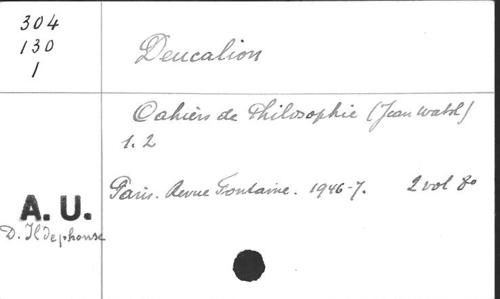 304
130
1
Deucalion
Cahiers de Philosophie (Jean Wahl)
1. 2
Paris. Revue Fontaine. 1946-7. 2 vol 8º
A. U.
D. Ildephonse